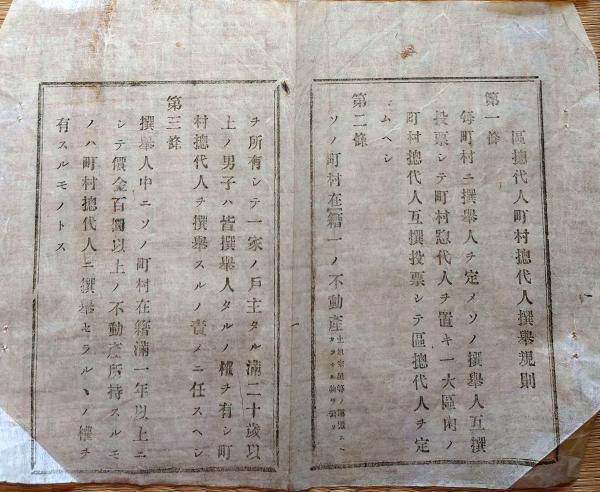 區摠代人町村摠代人撰擧規則
第一條
每町村ニ撰擧人ヲ定メソノ撰擧人互撰
投票シテ町村摠代人ヲ置キ一大區內ノ
町村摠代人互撰投票シテ區摠代人ヲ定
ムヘシ
第二條
ソノ町村在籍一ノ不動產
ヲ所有シテ一家ノ戶主タル滿二十歲以
上ノ男子ハ皆撰擧人タルノ權ヲ有シ町
村摠代人ヲ撰擧スルノ責メニ任スヘシ
第三條
撰擧人中ニソノ町村在籍滿一年以上ニ
シテ價金百圓以上ノ不動產所持スルモ
ノハ町村摠代人ニ撰擧セラルヽノ權ヲ
有スルモノトス